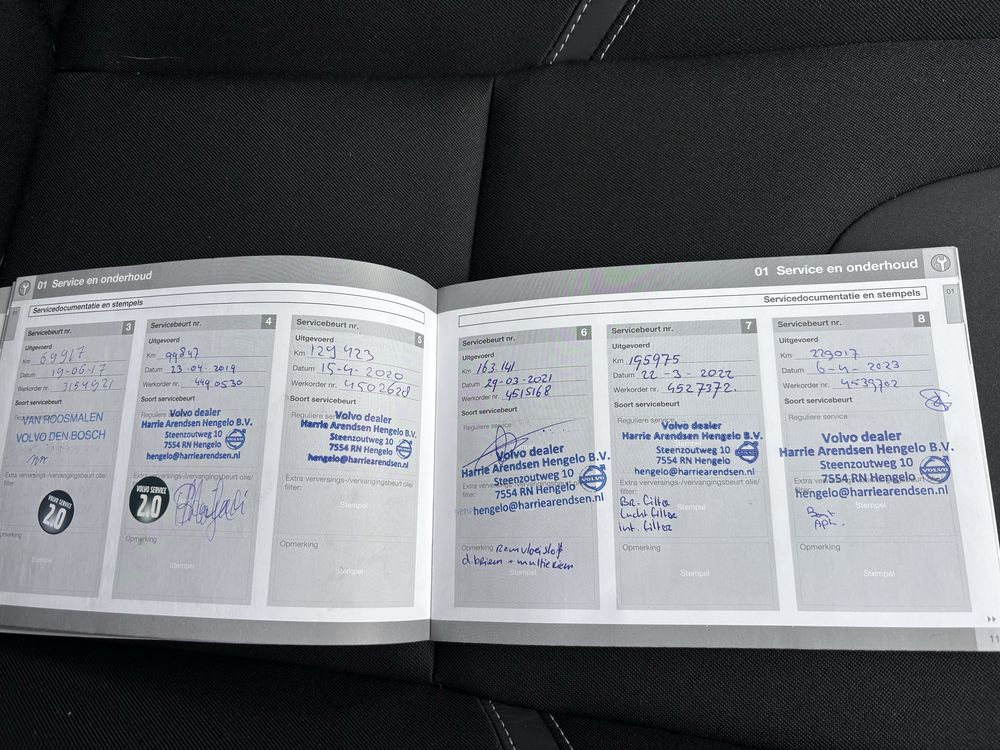 01 Service en onderhoud
Servicedocumentatie en stempels
Servicebeurt nr. 3
Uitgevoerd
Km 69917
Datum 19-06-17
Werkorder nr. 3154921
Soort servicebeurt
VAN ROOSMALEN
VOLVO DEN BOSCH
Extra verversings-/vervangingsbeurt olie/
filter:
VOLVO SERVICE
2.0
Opmerking
Stempel
Servicebeurt nr. 4
Uitgevoerd
Km 99847
Datum 23-04-2019
Werkorder nr. 4490530
Soort servicebeurt
Reguliere service
Volvo dealer
Harrie Arendsen Hengelo B.V.
Steenzoutweg 10
7554 RN Hengelo
hengelo@harriearendsen.nl
Extra verversings-/vervangingsbeurt olie/
VOLVO SERVICE
2.0
Opmerking
Stempel
Servicebeurt nr. 5
Uitgevoerd
Km 129423
Datum 15-4-2020
Werkorder nr. 4502628
Soort servicebeurt
Volvo dealer
Harrie Arendsen Hengelo B.V.
Steenzoutweg 10
7554 RN Hengelo
hengelo@harriearendsen.nl
Extra verversings-/vervangingsbeurt olie/
filter:
Stempel
Opmerking
Stempel
01 Service en onderhoud
01
Servicedocumentatie en stempels
Servicebeurt nr. 6
Uitgevoerd
Km 163.141
Datum 29-03-2021
Werkorder nr. 4515168
Soort servicebeurt
Reguliere service
Volvo dealer
Harrie Arendsen Hengelo B.V.
Steenzoutweg 10
7554 RN Hengelo
hengelo@harriearendsen.nl
Opmerking Remvloeistof
d.briem + multiriem
Stempel
Servicebeurt nr. 7
Uitgevoerd
Km 195975
Datum 22-3-2022
Werkorder nr. 4527372.
Soort servicebeurt
Volvo dealer
Harrie Arendsen Hengelo B.V.
Steenzoutweg 10
7554 RN Hengelo
hengelo@harriearendsen.nl
Extra verversings-/vervangingsbeurt olie/
filter:
Br. filter
Lucht filter
int. filter
Stempel
Opmerking
Stempel
Servicebeurt nr. 8
Uitgevoerd
Km 229017
Datum 6-4-2023
Werkorder nr. 4539702
Soort servicebeurt
Reguliere service
Volvo dealer
Harrie Arendsen Hengelo B.V.
Steenzoutweg 10
7554 RN Hengelo
hengelo@harriearendsen.nl
VOLVO
Stempel
Opmerking
Stempel
11